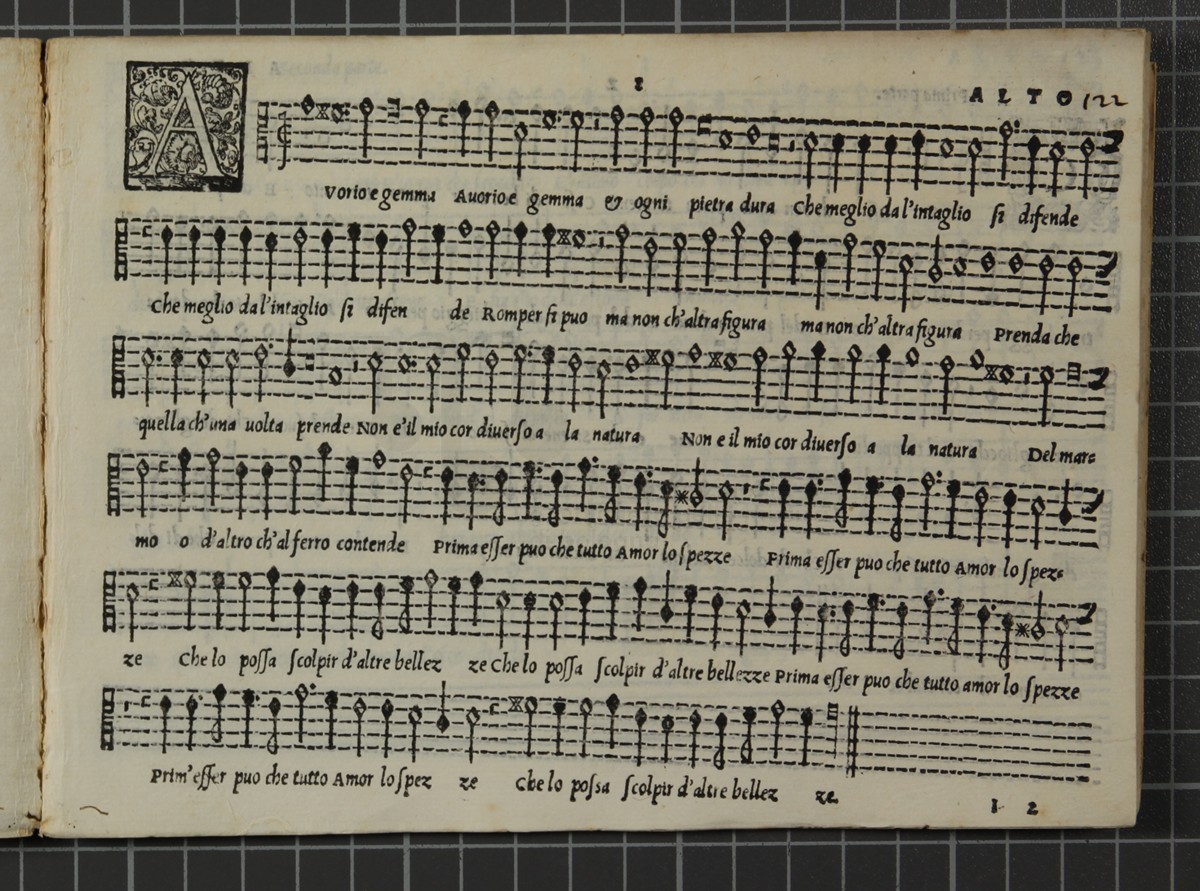 1 ALTO 122
AVorio e gemma Auorio e gemma & ogni pietra dura Che meglio da l'intaglio si difende
Che meglio da l'intaglio si difen de Romper si puo ma non ch'altra figura ma non ch'altra figura Prenda che
quella ch'una uolta prende Non e'il mio cor diuerso a la natura Non e il mio cor diuerso a la natura Del mar=
mo o d'altro ch'al ferro contende Prima esser puo che tutto Amor lo spezze Prima esser puo che tutto Amor lo spez=
ze Che lo possa scolpir d'altre bellez ze Che lo possa scolpir d'altre bellezze Prima esser puo che tutto amor lo spezze
Prim'esser puo che tutto Amor lo spez ze Che lo possa scolpir d'altre bellez ze.
I 2